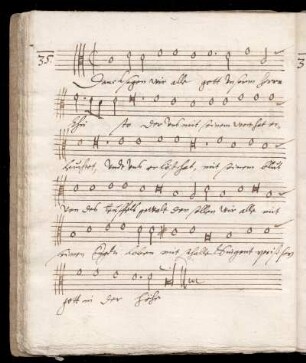 35
Danck sagen wir alle gott unserm herrn
der uns mit seinem wort hat er
leuchtet, Undt uns erlöset hat, mit seinem blut
von des teuffels gewalt den sollen wir alle mit
seinen Engeln loben mit schalle Singent preiß sey
gott in der höhe